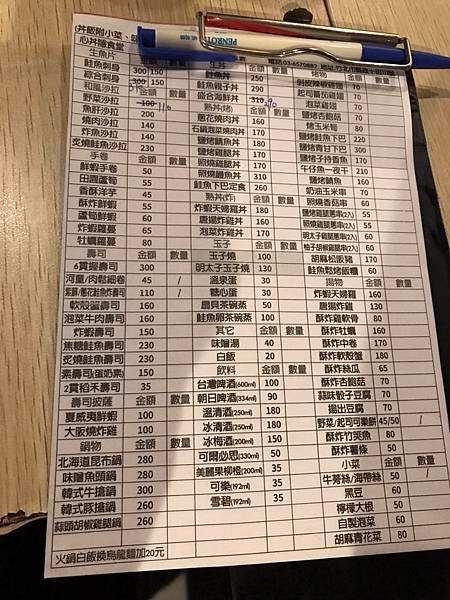 (丼飯附小菜、味
心丼隱食堂
電話:03-6570882
PENROTE
生魚片 金額 數量
鮭魚刺身 300 150
綜合刺身 300 150
和風沙拉
野菜沙拉 100 110
魚肝沙拉 200
燒肉沙拉 140
炸魚沙拉 140
炙燒鮭魚沙拉 230
手卷 金額 數量
鮮蝦手卷 50
田園蘆筍 55
香酥洋芋 45
酥炸鮮蝦 55
蘆筍鮮蝦 60
炸蝦蘿蔓 65
牡蠣蘿蔓 80
壽司 金額 數量
6貫握壽司 300
河童/肉鬆細卷 45 /
110 /
軟殼蟹壽司 150
泡菜牛肉壽司 160
炸蝦壽司 150
焦糖鮭魚壽司 230
炙燒鮭魚壽司 230
素壽司(蛋奶素) 150
2貫稻禾壽司 35
壽司披薩 金額 數量
夏威夷鮮蝦 100
大阪燒炸雞 100
鍋物 金額 數量
北海道昆布鍋 280
味噌魚頭鍋 280
韓式牛搶鍋 300
韓式豚搶鍋 260
蒜頭胡椒雞腿鍋 260
火鍋白飯換烏龍麵加20元
生丼 金額 數量
鮭魚丼 250
鮭魚親子丼 290
盛合海鮮丼 310 290
熟丼(烤) 金額 數量
蔥花燒肉丼 160
石鍋泡菜燒肉丼 170
鹽烤鯖魚丼 180
鹽烤雞腿丼 170
照燒雞腿丼 170
照燒鰻魚丼 310
鮭魚下巴定食 260
熟丼(炸) 金額 數量
炸蝦天婦羅丼 180
唐揚炸雞丼 160
泡菜炸雞丼 170
玉子 金額 數量
玉子燒 100
明太子玉子燒 130
溫泉蛋 30
糖心蛋 30
扇貝茶碗蒸 50
鮭魚卵茶碗蒸 100
其它 金額 數量
味噌湯 40
白飯 20
飲料 金額 數量
台灣啤酒(600ml) 100
朝日啤酒(334ml) 90
溫清酒(250ml) 180
冰清酒(250ml) 180
冰梅酒(200ml) 150
可爾必思(330ml) 50
美麗果柳橙(200ml) 35
可樂(192ml) 35
雪碧(192ml) 35
烤物 金額 數量
剝皮辣椒雞翅 70
起司蕃茄雞翅 70
泡菜雞翅 70
鹽烤杏鮑菇 70
烤玉米筍 80
鹽烤鮭魚下巴 220
鹽烤青甘下巴 300
鹽烤子持香魚 170
午仔魚一夜干 210
鹽烤鯖魚 160
奶油玉米串 70
照燒香菇串 60
鹽烤雞腿蔥串(2入) 55
照燒雞腿蔥串(2入) 55
明太子雞腿蔥串(2入) 60
柚子胡椒雞腿串(2入) 60
胡麻松阪豬 170
鮭魚鬆烤飯糰 60
揚物 金額 數量
炸蝦天婦羅 160
唐揚炸雞 130
酥炸雞軟骨 80
酥炸牡蠣 160
酥炸中卷 170
酥炸軟殼蟹 180
酥炸絲瓜 65
酥炸杏鮑菇 70
蒜味骰子豆腐 70
揚出豆腐 70
野菜/起司可樂餅 45/50 /
酥炸竹莢魚 80
酥炸薯條 50
小菜 金額 數量
牛蒡絲/海帶絲 50 /
黑豆 60
檸檬大根 50
自製泡菜 60
胡麻青花菜 80